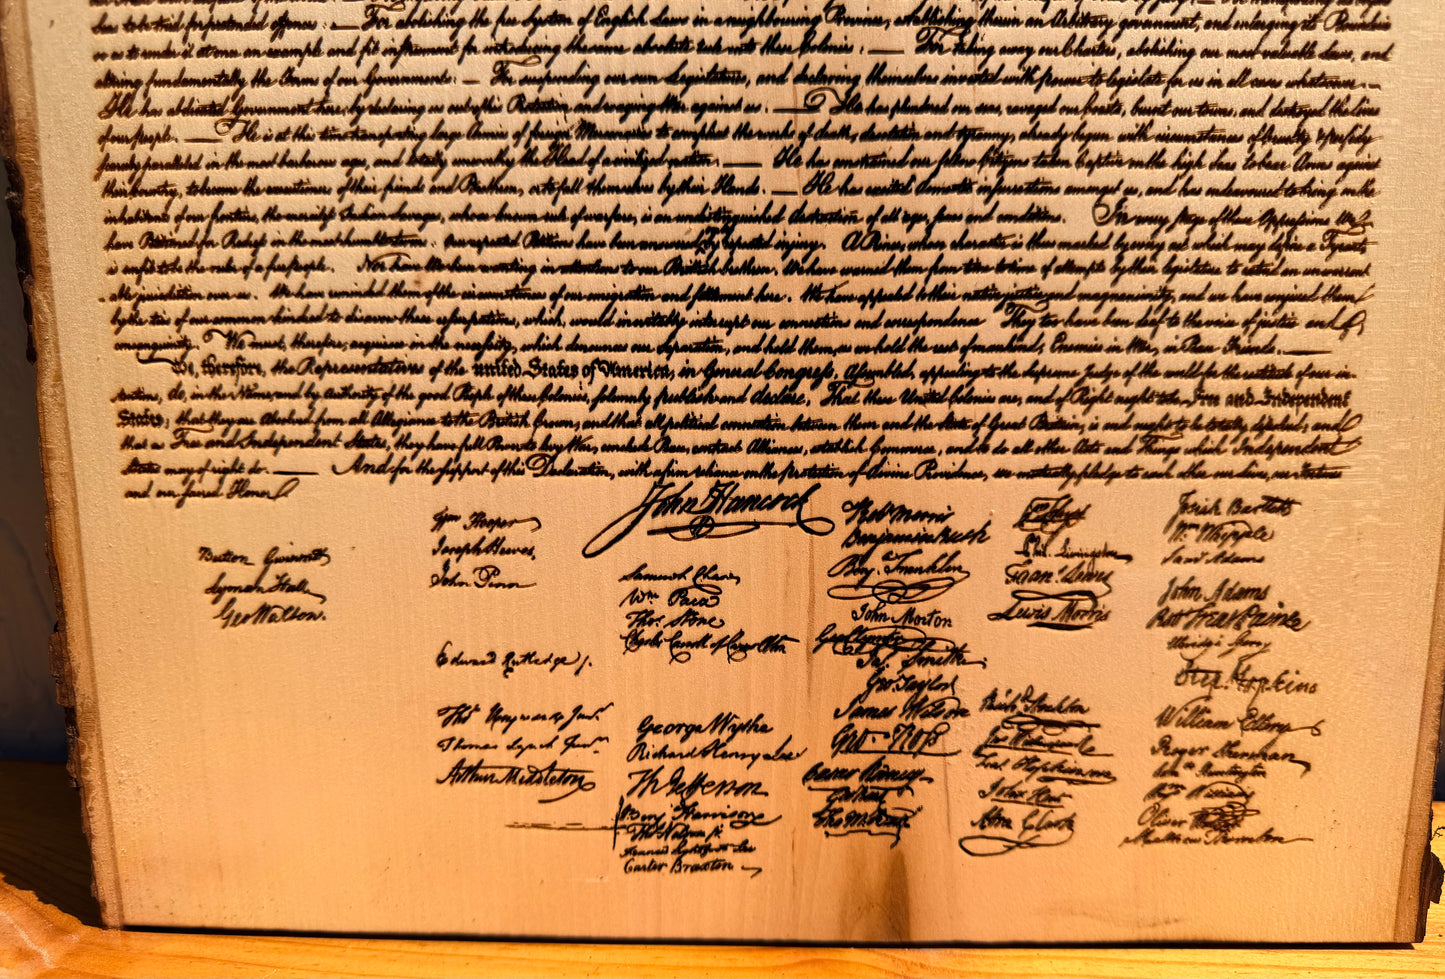 has to be tried for pretended offences : — For abolishing the free System of English Laws in a neighbouring Province, establishing therein an Arbitrary government, and enlarging its Boundaries
so as to render it at once an example and fit instrument for introducing the same absolute rule into these Colonies : — For taking away our Charters, abolishing our most valuable Laws, and
altering fundamentally the Forms of our Governments : — For suspending our own Legislatures, and declaring themselves invested with power to legislate for us in all cases whatsoever. —
He has abdicated Government here, by declaring us out of his Protection and waging War against us . — He has plundered our seas, ravaged our Coasts, burnt our towns, and destroyed the lives
of our people. — He is at this time transporting large Armies of foreign Mercenaries to compleat the works of death, desolation and tyranny, already begun with circumstances of Cruelty & perfidy
scarcely paralleled in the most barbarous ages, and totally unworthy the Head of a civilized nation. — He has constrained our fellow Citizens taken Captive on the high Seas to bear Arms against
their Country, to become the executioners of their friends and Brethren, or to fall themselves by their Hands. — He has excited domestic insurrections amongst us, and has endeavoured to bring on the
inhabitants of our frontiers, the merciless Indian Savages, whose known rule of warfare, is an undistinguished destruction of all ages, sexes and conditions. In every stage of these Oppressions We
have Petitioned for Redress in the most humble terms : Our repeated Petitions have been answered by repeated injury. A Prince, whose character is thus marked by every act which may define a Tyrant,
is unfit to be the ruler of a free people. Nor have We been wanting in attentions to our Brittish brethren. We have warned them from time to time of attempts by their legislature to extend an unwarrant
able jurisdiction over us. We have reminded them of the circumstances of our emigration and settlement here. We have appealed to their native justice and magnanimity, and we have conjured them
by the ties of our common kindred to disavow these usurpations, which, would inevitably interrupt our connections and correspondence They too have been deaf to the voice of justice and of
consanguinity. We must, therefore, acquiesce in the necessity, which denounces our Separation, and hold them, as we hold the rest of mankind, Enemies in War, in Peace Friends. —
We, therefore, the Representatives of the united States of America, in General Congress, Assembled, appealing to the Supreme Judge of the world for the rectitude of our in-
tentions, do, in the Name, and by Authority of the good People of these Colonies, solemnly publish and declare, That these United Colonies are, and of Right ought to be Free and Independent
States; that they are Absolved from all Allegiance to the British Crown, and that all political connection between them and the State of Great Britain, is and ought to be totally dissolved; and
that as Free and Independent States, they have full Power to levy War, conclude Peace, contract Alliances, establish Commerce, and to do all other Acts and Things which Independent
States may of right do. — And for the support of this Declaration, with a firm reliance on the protection of divine Providence, we mutually pledge to each other our Lives, our Fortunes
and our sacred Honor
Button Gwinnett
Lyman Hall
Geo Walton.
Wm Hooper
Joseph Hewes,
John Penn
Edward Rutledge /.
Thos Heyward Junr.
Thomas Lynch Junr.
Arthur Middleton
John Hancock
Samuel Chase
Wm Paca
Thos Stone
Charles Carroll of Carrollton
George Wythe
Richard Henry Lee
Th Jefferson
Benj Harrison
Thos Nelson jr.
Francis Lightfoot Lee
Carter Braxton
Robt Morris
Benjamin Rush
Benj. Franklin
John Morton
Geo Clymer
Jas. Smith
Geo. Taylor
James Wilson
Geo. Ross
Caesar Rodney
Geo Read
Tho M:Kean
Wm Floyd
Phil. Livingston
Frans. Lewis
Lewis Morris
Richd Stockton
Jno Witherspoon
Fras. Hopkinson
John Hart
Abra Clark
Josiah Bartlett
Wm Whipple
Saml Adams
John Adams
Robt Treat Paine
Elbridge Gerry
Step. Hopkins
William Ellery
Roger Sherman
Saml Huntington
Wm Williams
Oliver Wolcott
Matthew Thornton